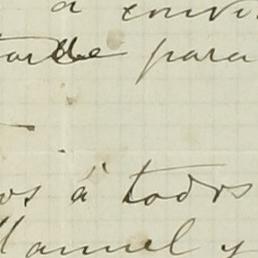 á convi
tarde para
os á todos
Manuel y